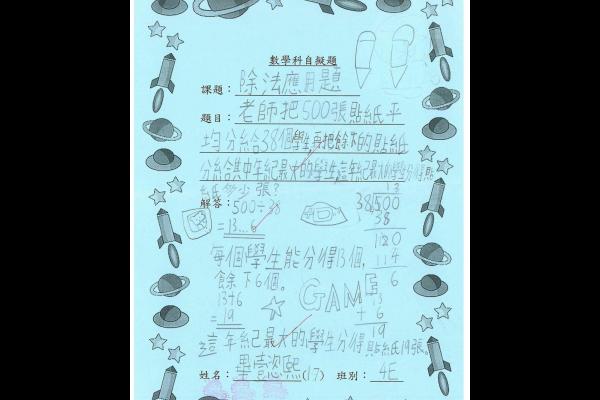 數學科自擬題
課題：除法應用題
題目：老師把500張貼紙平
均分給38個學生,再把餘下的貼紙
分給其中年紀最大的學生,這年紀最大的學生分得貼
紙多少張?
解答：500÷38
=13...6
13
38√500
38
120
114
6
每個學生能分得13個,
餘下6個。
GAME
13+6
=19
13
+ 6
19
這年紀最大的學生分得貼紙19張。
姓名： (17) 班別：4E